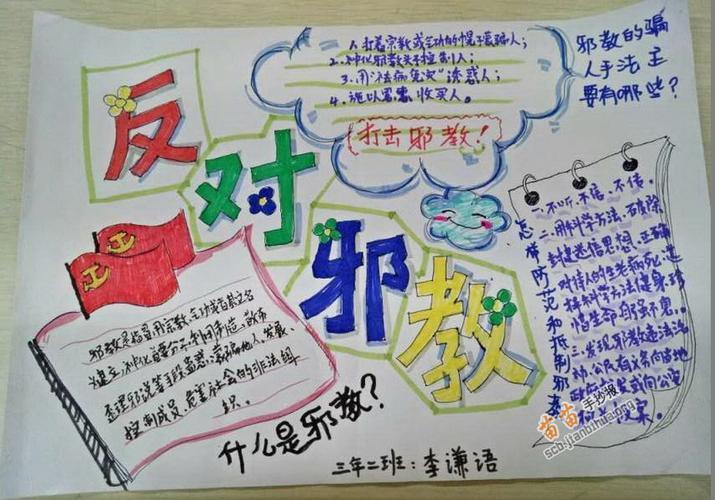 反对邪教
1.打着宗教或气功的幌子蒙骗人;
2.神化邪教头子控制人;
3.用"祛病免灾"诱惑人;
4.施以恩惠,收买人。
打击邪教!
邪教的骗
人手法主
要有哪些?
怎样防范和抵制邪教
一、不听、不信、不传。
二、用科学方法,破除
封建迷信思想,正确
对待人的生老病死,选
择科学方法健身,珍
惜生命,自强不息。
三、发现邪教违法活
动,公民有义务向当地
政府
或向公安
报案。
邪教是指冒用宗教、气功或者其它名
义建立,神化首要分子,利用制造、散布
歪理邪说等手段蛊惑、蒙骗他人,发展、
控制成员,危害社会的非法组
织。
什么是邪教?
三年二班:李谦语
苗苗手抄报
scb.jianbihua.org